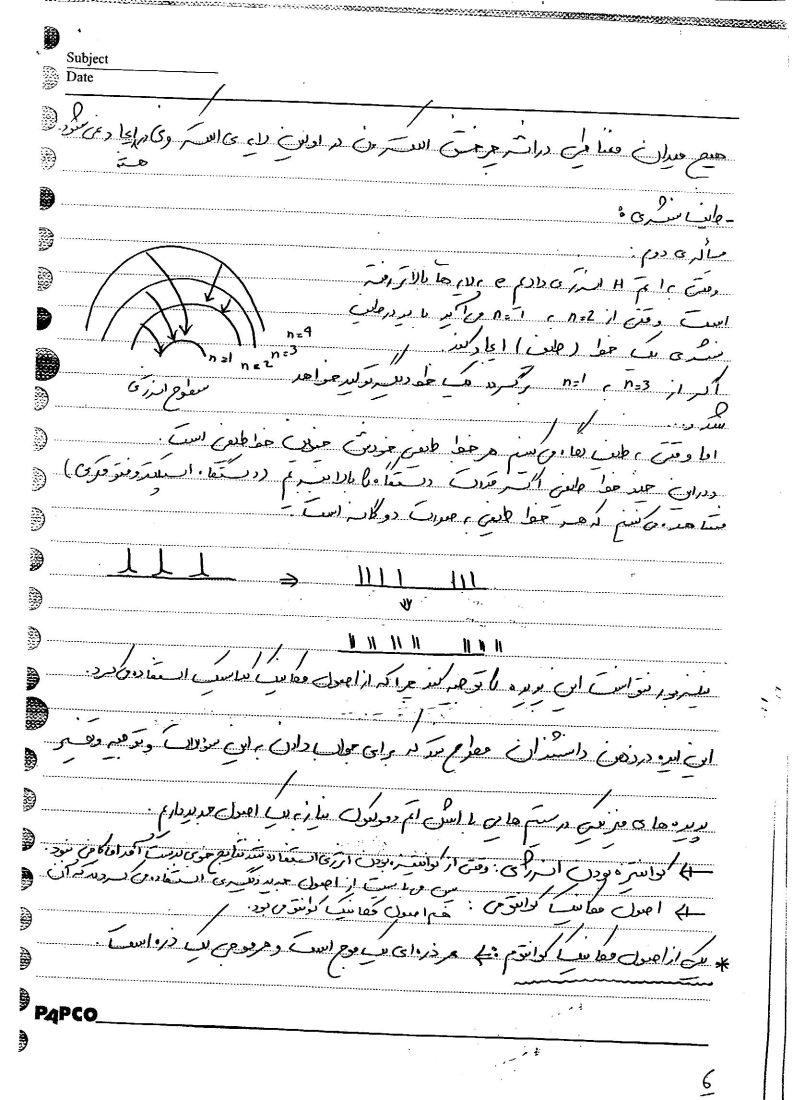 Subject
Date
هیچ میدان مغناطیسی در اثر چرخش الکترون در اولین لایه ی الکترونی در ایجاد نمی شود.
هسته
- طیف نشری :
مسأله ی دوم :
وقتی به اتم H انرژی دادیم e به لایه ها بالاتر رفته
است وقتی از n=2 به n=1 می آید باید در طیف
نشری یک خط (طیف) ایجاد کند.
اگر از n=3 به n=1 برگردد یک خط دیگر تولید خواهد
شد و...
n=1 n=2 n=3 n=4
سطوح انرژی
اما وقتی به طیف نگاه می کنیم هر خط طیفی خودش چندین خط طیفی است.
و در این چند خط طیفی اگر قدرت دستگاه را بالا ببریم (دستگاه اسپکتروفتومتری)
مشاهده می کنیم که هر خط طیفی به صورت دوگانه است.
⇒
نیلز بور نتوانست این پدیده را توجیه کند چرا که از اصول مکانیک کلاسیک استفاده می کرد.
این ایده در ذهن دانشمندان مطرح شد که برای جواب دادن به این سؤالات و توجیه و تفسیر
پدیده های فیزیکی در سیستم هایی با ابعاد اتم و مولکول نیاز به یک اصول جدید داریم.
کوانتیزه بودن انرژی : وقتی از کوانتیزه بودن انرژی استفاده شد نتایج خوبی بدست آمد اما کافی نبود.
پس می بایست از اصول جدید دیگری استفاده می کردند که آن
هم اصول مکانیک کوانتومی بود.
اصول مکانیک کوانتومی :
* یکی از اصول مکانیک کوانتوم : هر ذره ای یک موج است و هر موجی یک ذره است.
PAPCO
6